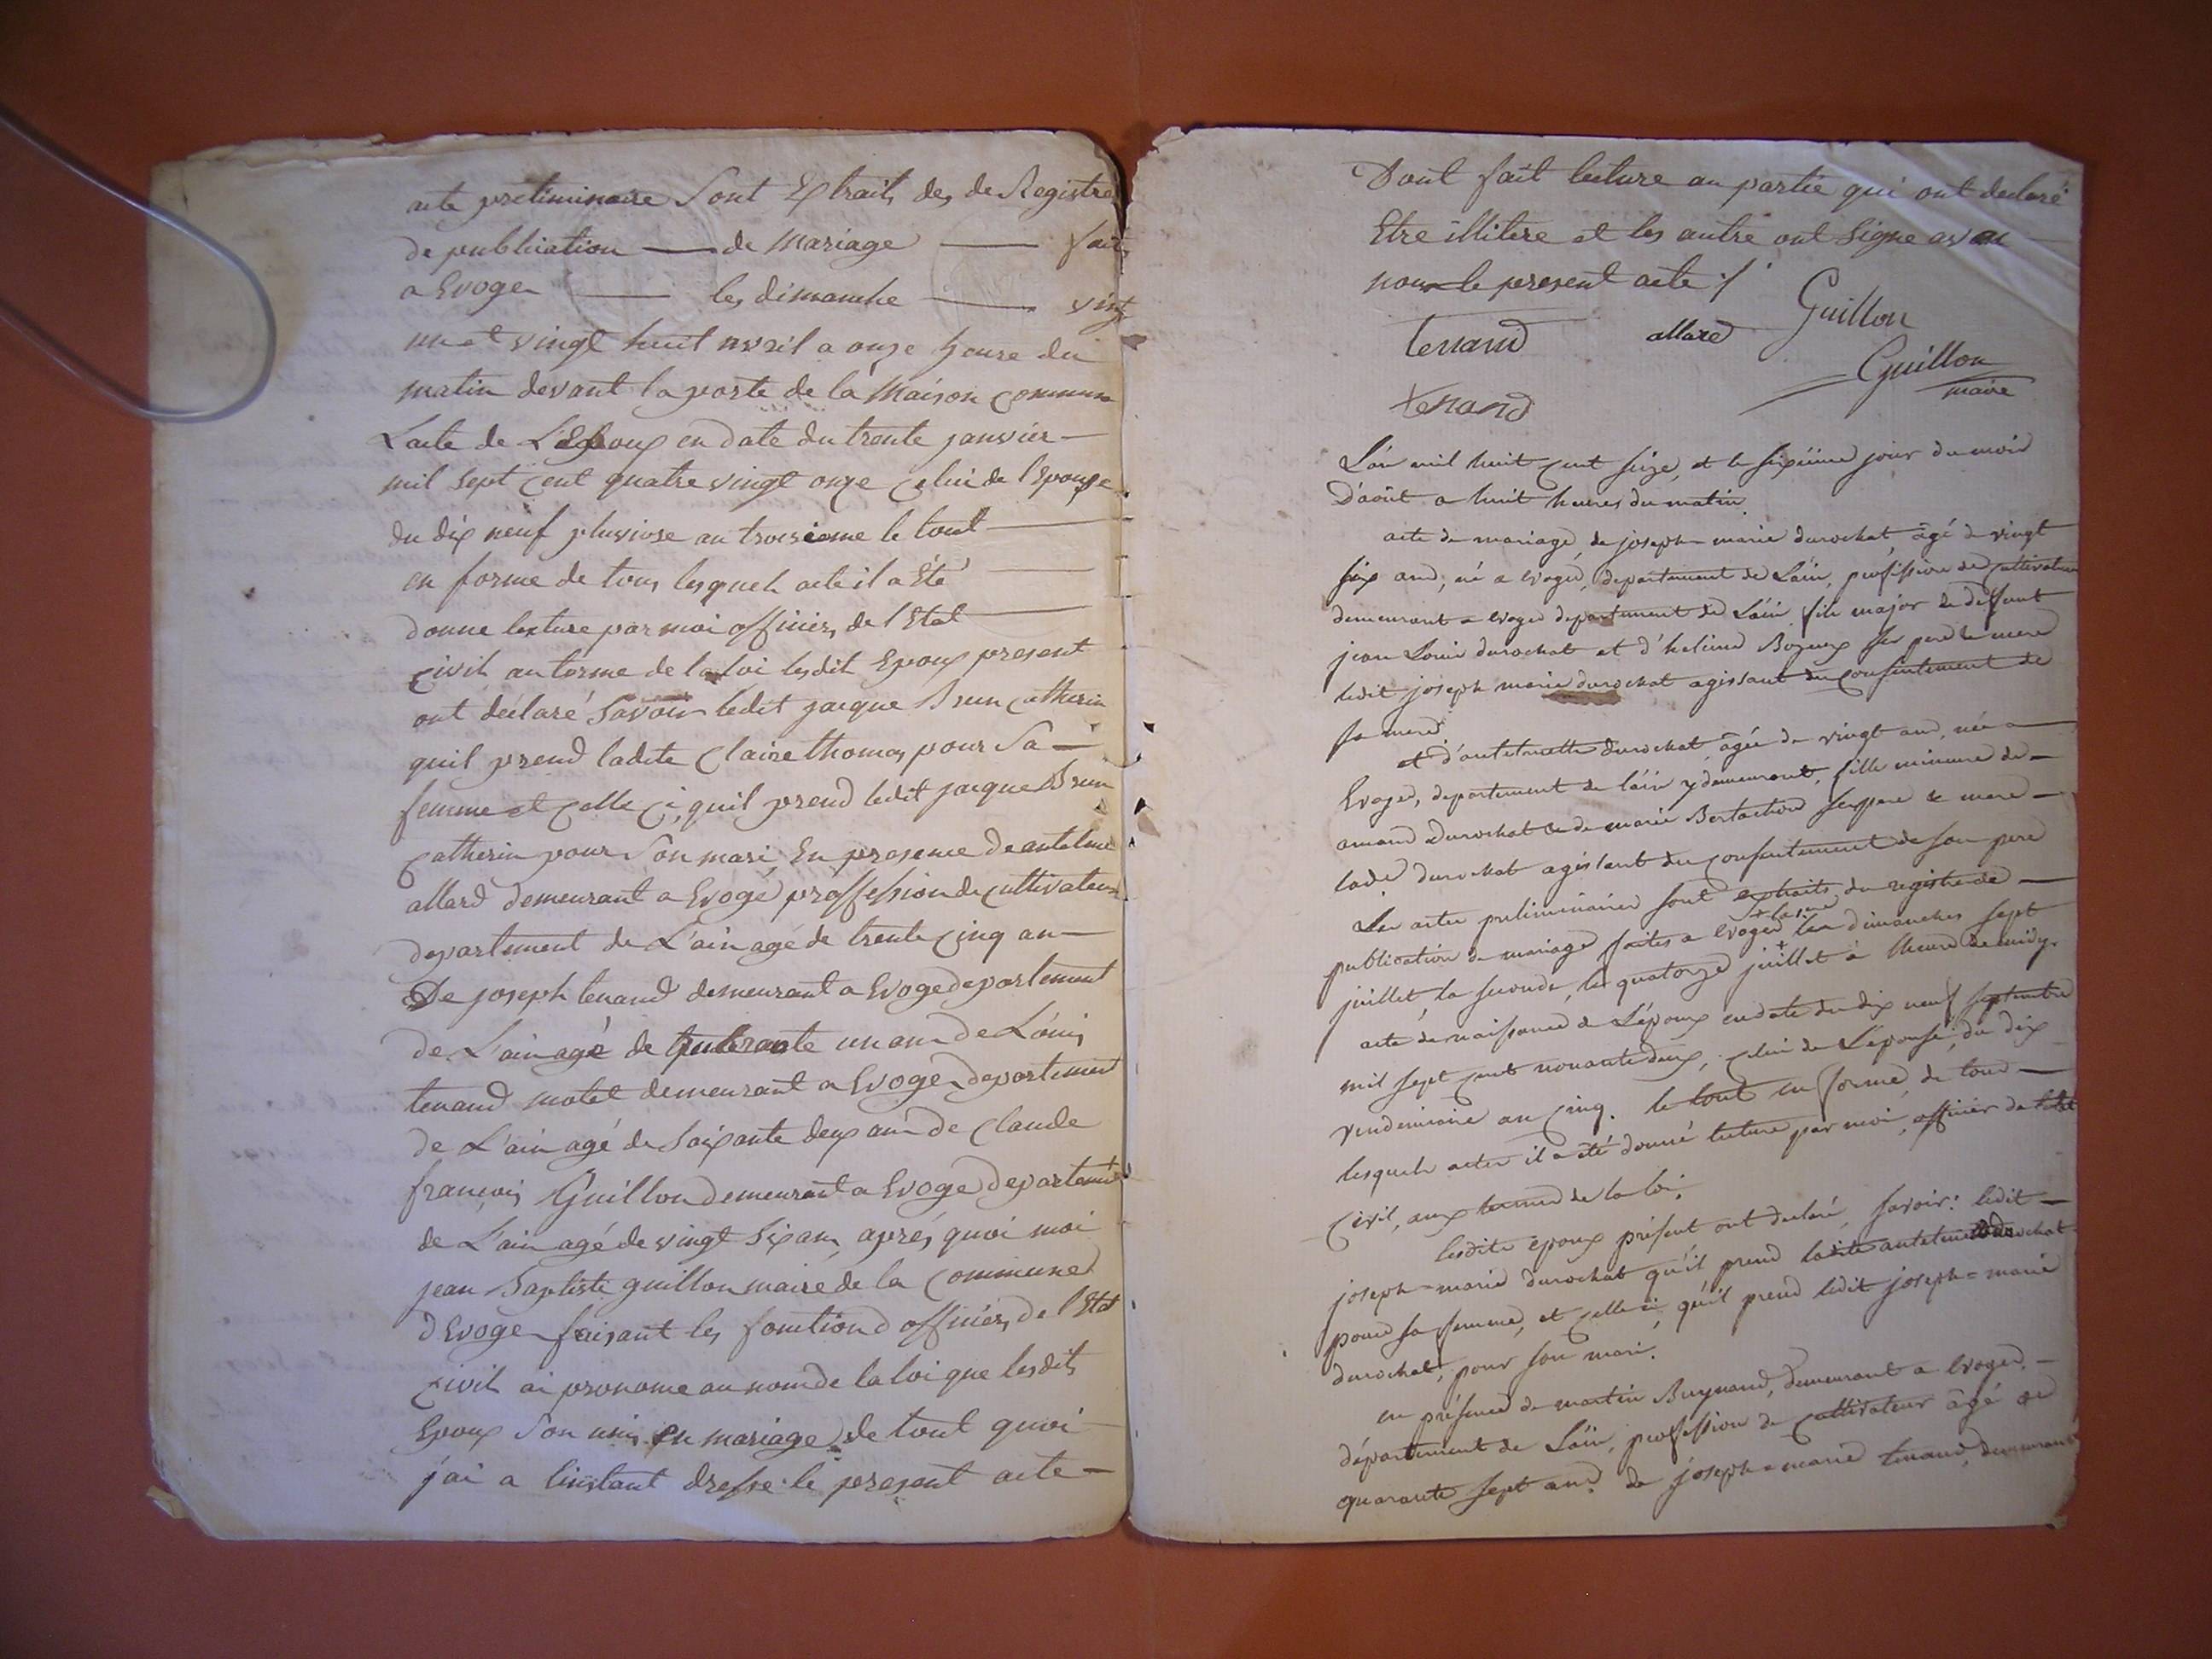 acte preliminaire Sont Extraits des de Registre
de publication — de Mariage — fait
a Evoge — les dimanche — vingt
un et vingt huit avril a onze heure du
matin devant la porte de la Maison commune
L'acte de L'Epoux en date du trente janvier —
mil sept cent quatre vingt onze celui de l'Epouse
du dix neuf pluviose an troisieme le tout —
en forme de tous lesquels acte il a Eté —
donne lecture par moi officiers de l'Etat —
civil au terme de la loi lesdit Epoux present
ont déclaré Savoir ledit jacque Brun Catherin
quil prend ladite Claire thomas pour Sa —
femme et celle ci, quil prend ledit jacque Brun
Catherin pour Son mari, En presence de antelme
allard demeurant a Evoge proffession de cultivateur
departement de L'ain agé de trente cinq an —
De joseph tenand demeurant a Evoge departement
de L'ain agé de quarante un an de Louis
tenand motet demeurant a Evoge departement
de L'ain agé de Soixante deux an de Claude
françois Guillon demeurant a Evoge departement
de L'ain agé de vingt Six ans, aprés quoi moi
jean Baptiste guillon maire de la Commune
d'Evoge faisant les fonction d'officiers de l'Etat
civil ai pronome au nom de la loi que lesdits
Epoux Son unis en mariage de tout quoi —
j'ai a linstant dresse le present acte —
Dont fait lecture au partie qui ont declaré
Etre illitere et les autre ont Signe avec
nous le present acte ./.
Guillon
tenand allard
Guillon
maire
tenand
L'an mil huit cent seize, et le sixiéme jour du mois
D'août a huit heures du matin.
acte de mariage, de joseph-marie durochat, âgé de vingt
six ans, né a Evoges, departement de L'ain, profession de cultivateur
demeurant a Evoges departement de L'ain, fils major de deffunt
jean Louis durochat et d' Bozeux ses pere & mere
ledit joseph marie durochat agissant du consentement de
sa mere
et d'antelmette durochat âgée de vingt ans, née a —
Evoges, departement de l'ain y demeurant, fille mineure de —
amand Durochat & de marie Bertachon ses pere & mere —
lade durochat agissant du consentement de son pere
Les actes preliminaires sont extraits du registre de —
publication de mariage faites a Evoges les dimanches sept
juillet, la seconde, le quatorze juillet a l'heure de midy.
acte de naissance de L'époux en date du dix neuf septembre
mil sept cent nonante deux, celui de L'épouse, du dix
vendemiaire an cinq. le tout en forme, de tous —
lesquels actes il a été donné lecture par moi, officier de l'etat
Civil, aux termes de la loi.
lesdits époux présent ont declaré, savoir: ledit —
joseph-marie durochat qu'il prend ladite antelmette durochat
pour sa femme, et celle ci, qu'il prend ledit joseph=marie
durochat, pour son mari.
en présence de martin Buynand, demeurant a Evoges. —
département de L'ain, profession de cultivateur âgé de
quarante sept ans. de joseph=marie tenand, demeurant